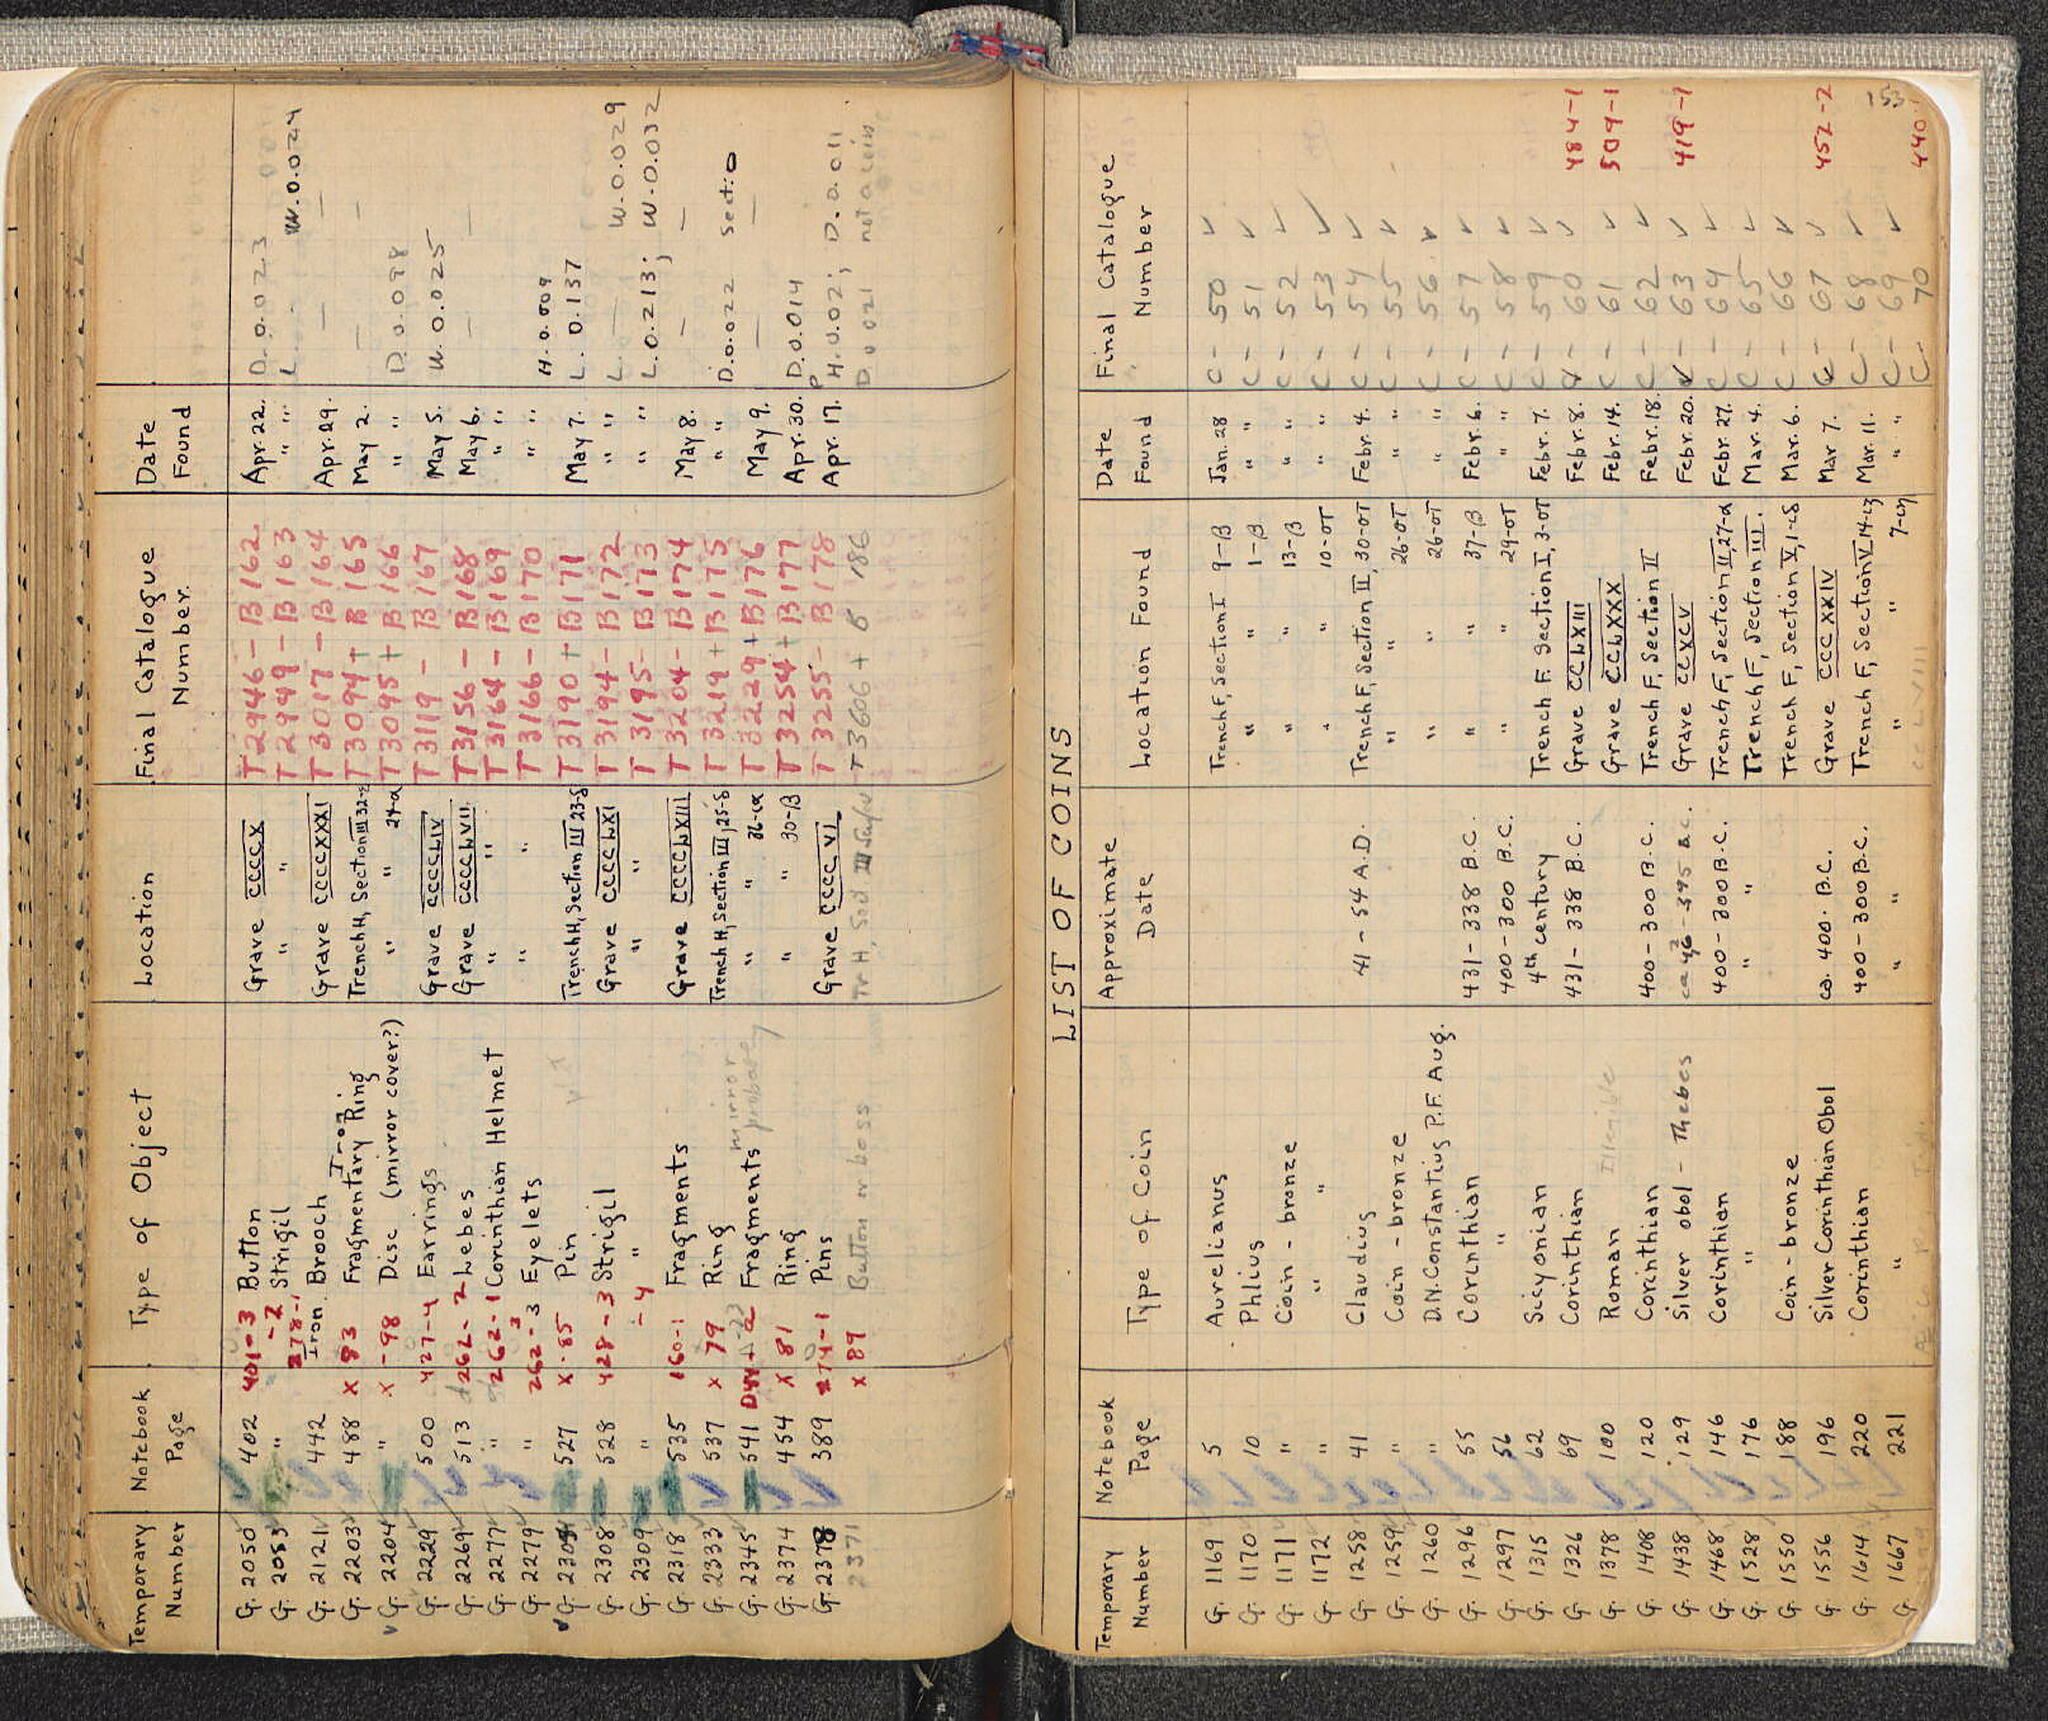 Temporary Number | Notebook Page | Type of Object | Location | Final Catalogue Number. | Date Found
G. 2050 | 402 | 401-3 Button | Grave CCCCX | T2946 - B162 | Apr. 22. | D. 0.023
G. 2053 | " | -2 Strigil | " | T2949 - B163 | " " | L. - W. 0.024
G. 2121 | 442 | 278-1 Iron Brooch | Grave CCCCXXXI | T3017 - B164 | Apr. 29. | — —
G. 2203 | 488 | x 83 Fragmentary Iron Ring | Trench H, Section III 32- | T3094 + B165 | May 2. | — —
G. 2204 | " | x-98 Disc (mirror cover?) | " " 24-α | T3095 + B166 | " " | D. 0.098
G. 2229 | 500 | 427-4 Earrings | Grave CCCCLIV | T3119 - B167 | May 5. | W. 0.025
G. 2269 | 513 | 262-2 Lebes | Grave CCCCLVII | T3156 - B168 | May 6. | — —
G. 2277 | " | 262-1 Corinthian Helmet | " " | T3164 - B169 | " "
G. 2279 | " | 262-3 Eyelets | " " | T3166 - B170 | " " | H. 0.009
G. 2304 | 527 | x-85 Pin | Trench H, Section III 23-δ | T3190 + B171 | May 7. | L. 0.137
G. 2308 | 528 | 428-3 Strigil | Grave CCCCLXI | T3194 - B172 | " " | L. — W. 0.029
G. 2309 | " | -4 " | " " | T3195 - B173 | " " | L. 0.213; W. 0.032
G. 2318 | 535 | 160-1 Fragments | Grave CCCCLXIII | T3204 - B174 | May 8. | — —
G. 2333 | 537 | x 79 Ring | Trench H, Section III, 25-δ | T3219 + B175 | " " | D. 0.022 Section
G. 2345 | 541 | Fragments mirror probably | " " | T3229 + B176 | May 9. | — —
G. 2374 | 454 | x 81 Ring | " " 30-B | T3254 + B177 | Apr. 30. | D. 0.014
G. 2378 | 389 | 274-1 Pins | Grave CCCCVI | T3255 - B178 | Apr. 17. | H. 0.02; D. 0.011
2371 | x 89 Button or boss | Tr H, Sec III | T3606 + B 186 | D. 0 021 not a coin
153
LIST OF COINS
Temporary Number | Notebook Page | Type of Coin | Approximate Date | Location Found | Date Found | Final Catalogue Number
G. 1169 | 5 | Aurelianus | Trench F, Section I 9-B | Jan. 28 | C - 50 ✓
G. 1170 | 10 | Phlius | " " 1-B | " " | C - 51 ✓
G. 1171 | " | Coin - bronze | " " 13-B | " " | C - 52 ✓
G. 1172 | " | " " | " " 10-στ | " " | C - 53 ✓
G. 1258 | 41 | Claudius | 41 - 54 A.D. | Trench F, Section II, 30-στ | Febr. 4. | C - 54 ✓
G. 1259 | " | Coin - bronze | " " 26-στ | " " | C - 55 ✓
G. 1260 | " | D.N. Constantius P.F. Aug. | " " 26-στ | " " | C - 56 ✓
G. 1296 | 55 | Corinthian | 431 - 338 B.C. | " " 37-B | Febr. 6. | C - 57 ✓
G. 1297 | 56 | " | 400 - 300 B.C. | " " 29-στ | " " | C - 58 ✓
G. 1315 | 62 | Sicyonian | 4th century | Trench F. Section I, 3-στ | Febr. 7. | C - 59 ✓
G. 1326 | 69 | Corinthian | 431 - 338 B.C. | Grave CCLXIII | Febr. 8. | C - 60 ✓ 484-1
G. 1378 | 100 | Roman Illegible | Grave CCLXXX | Febr. 14. | C - 61 ✓ 509-1
G. 1408 | 120 | Corinthian | 400 - 300 B.C. | Trench F, Section II | Febr. 18. | C - 62 ✓
G. 1438 | 129 | Silver obol - Thebes | ca 395 B.C. | Grave CCXCV | Febr. 20. | C - 63 ✓ 419-1
G. 1468 | 146 | Corinthian | 400 - 300 B.C. | Trench F, Section II, 27-α | Febr. 27. | C - 64 ✓
G. 1528 | 176 | " | " | Trench F, Section III. | Mar. 4. | C - 65 ✓
G. 1550 | 188 | Coin - bronze | Trench F, Section V, 1-ιδ | Mar. 6. | C - 66 ✓
G. 1556 | 196 | Silver Corinthian Obol | ca. 400. B.C. | Grave CCCXXIV | Mar 7. | C - 67 ✓ 452-2
G. 1614 | 220 | Corinthian | 400 - 300 B.C. | Trench F, Section V 14-ιζ | Mar. 11. | C - 68 ✓
G. 1667 | 221 | " | " | " " 7-ιη | " " | C - 69 ✓
G. | C - 70 | 440